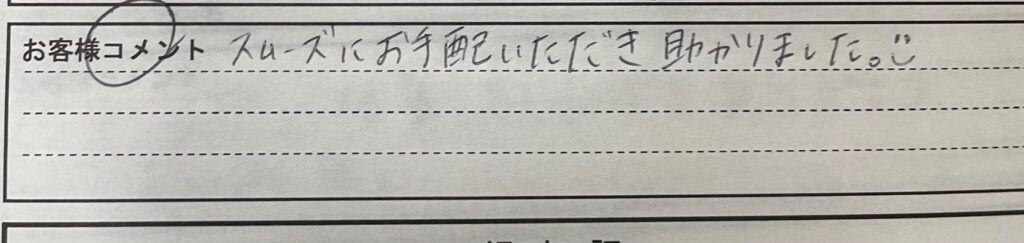 お客様コメント スムーズにお手配いただき助かりました。